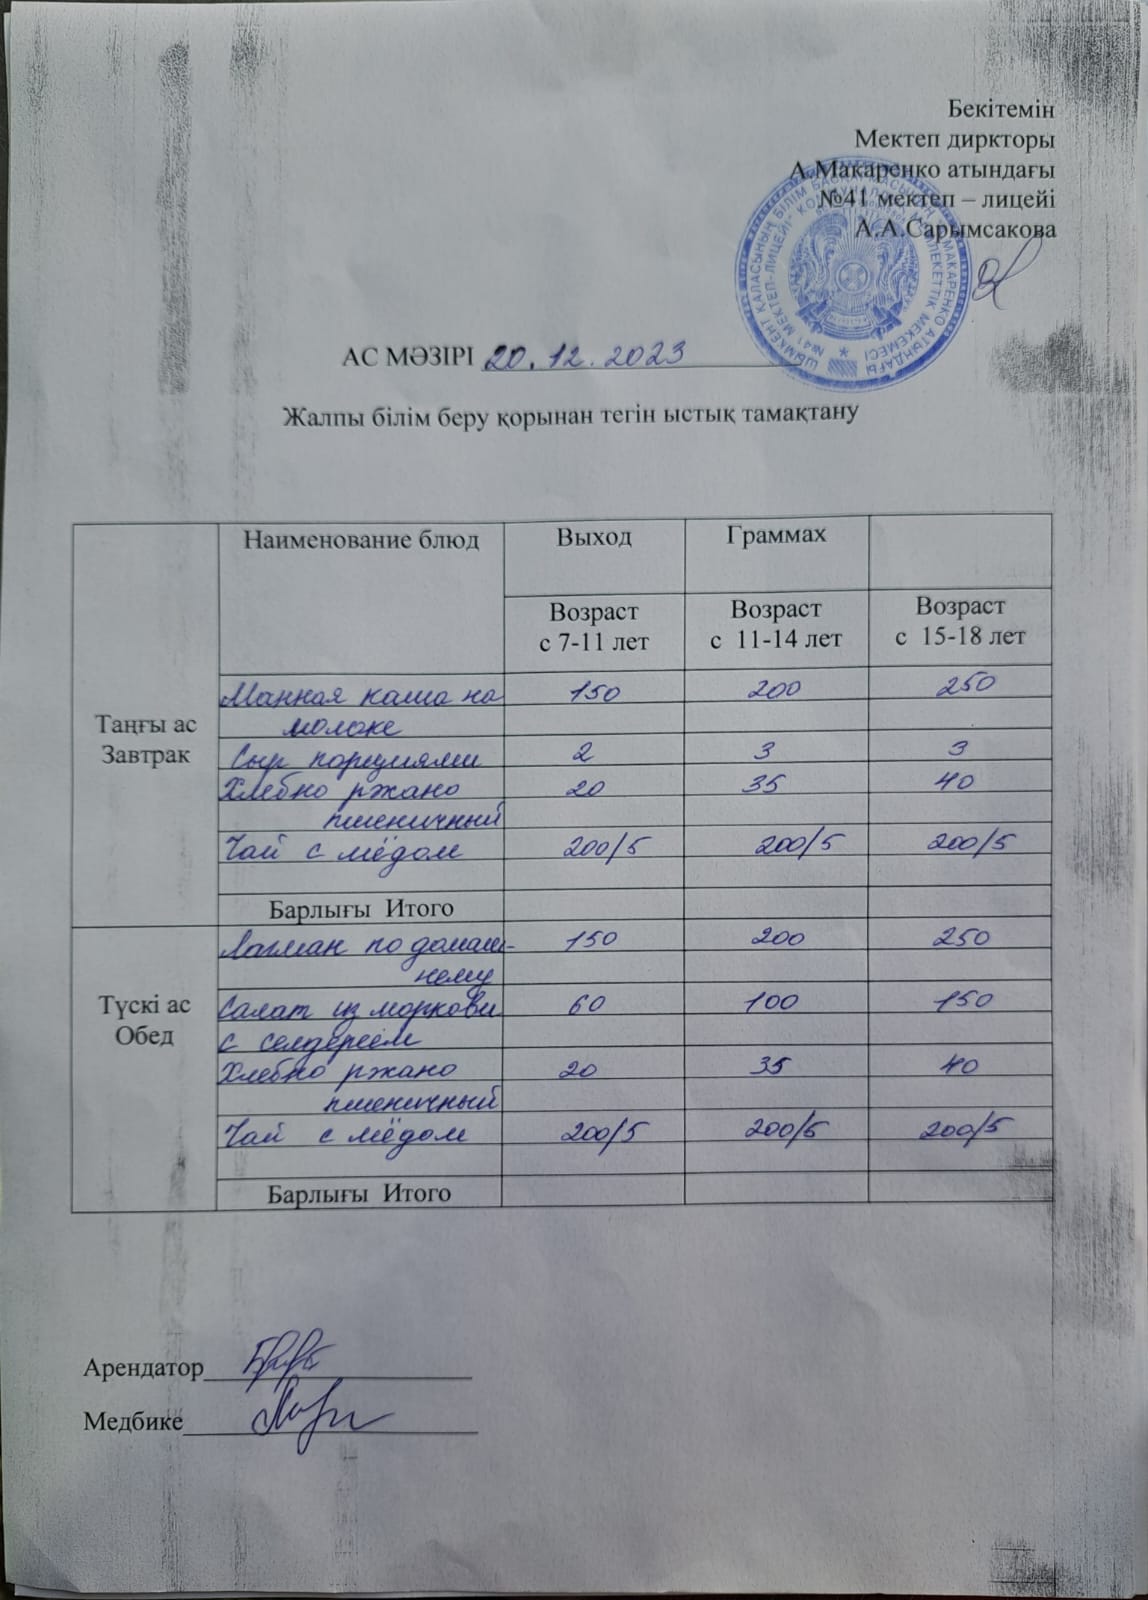 Бекітемін
Мектеп дирктоpы
А.Макаренко атындағы
№41 мектеп – лицейі
А.А.Сарымсакова
АС МӘЗІРІ 20.12.2023
Жалпы білім беру қорынан тегін ыстық тамақтану
Наименование блюд Выход Граммах
Возраст с 7-11 лет Возраст с 11-14 лет Возраст с 15-18 лет
Таңғы ас
Завтрак
Манная каша на 150 200 250
молоке
Сыр порциями 2 3 3
Хлебно ржано 20 35 40
пшеничный
Чай с мёдом 200/5 200/5 200/5
Барлығы Итого
Түскі ас
Обед
Лагман по домаш- 150 200 250
нему
Салат из моркови 60 100 150
с селдереем
Хлебно ржано 20 35 40
пшеничный
Чай с мёдом 200/5 200/5 200/5
Барлығы Итого
Арендатор
Медбике